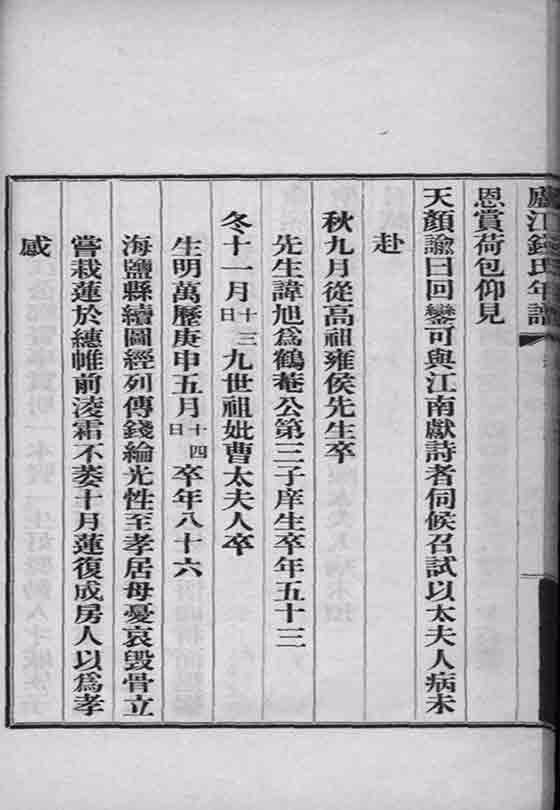 廬江錢氏年譜
恩賞荷包仰見
天顏諭曰回鑾可與江南獻詩者伺候召試以太夫人病未
赴
秋九月從高祖雍侯先生卒
先生諱旭爲鶴菴公第三子庠生卒年五十三
冬十一月十三日九世祖妣曹太夫人卒
生明萬歷庚申五月十四日卒年八十六
海鹽縣續圖經列傳錢綸光性至孝居母憂哀毀骨立
嘗栽蓮於繐帷前淩霜不萎十月蓮復成房人以爲孝
感